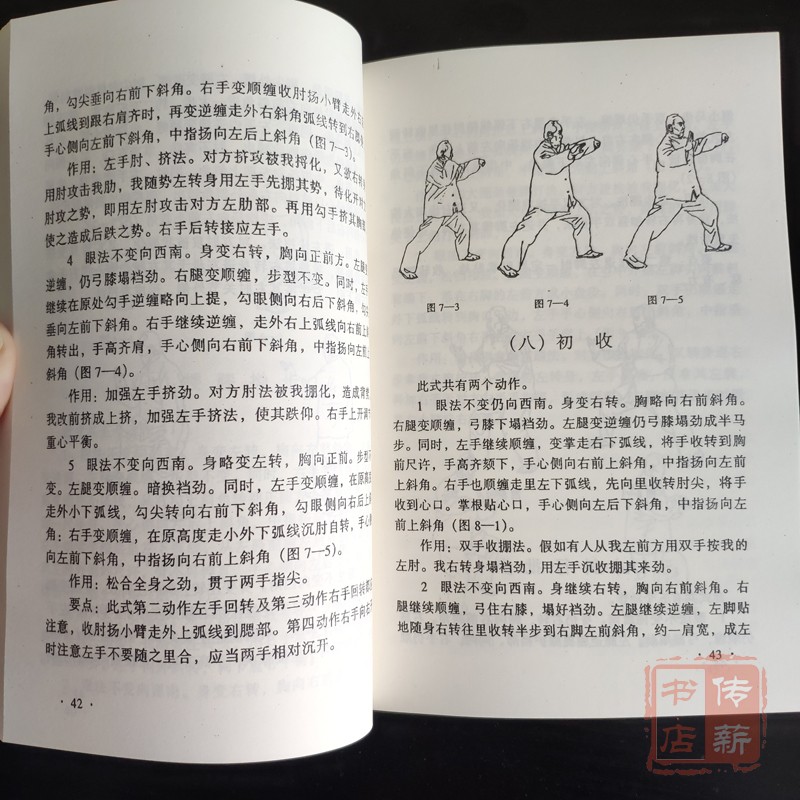 角，勾尖垂向右前下斜角。右手变顺缠收肘扬小臂走外
上弧线到跟右肩齐时，再变逆缠走外右斜角弧线转到右
手心侧向左前下斜角，中指扬向左后上斜角（图 7—3）。
作用：左手肘、挤法。对方挤攻被我捋化，又欲右转
用肘攻击我肋，我随势左转身用左手先掤其势，待化开对
肘攻之势，即用左肘攻击对方左肋部。再用勾手挤其胸
使之造成后跌之势。右手后转接应左手。
4 眼法不变向西南。身变右转，胸向正前方。左腿
逆缠，仍弓膝塌裆劲。右腿变顺缠，步型不变。同时，左
继续在原处勾手逆缠略向上提，勾眼侧向右后下斜角，勾
垂向左前下斜角。右手继续逆缠，走外右上弧线向右前上
角转出，手高齐肩，手心侧向右前下斜角，中指扬向左前
斜角（图 7—4）。
作用：加强左手挤劲。对方肘法被我掤化，造成背
我改前挤成上挤，加强左手挤法，使其跌仰。右手上开调
重心平衡。
5 眼法不变向西南。身略变左转，胸向正前。步型
变。左腿变顺缠。暗换裆劲。同时，左手变顺缠，在原高
走外小下弧线，勾尖转向右前下斜角，勾眼侧向右后上
角：右手变顺缠，在原高度走小外下弧线沉肘自转，手心
向左前下斜角，中指扬向右前上斜角（图 7—5）。
作用：松合全身之劲，贯于两手指尖。
要点：此式第二动作左手回转及第三动作右手回转都
注意，收肘扬小臂走外上弧线到腮部。第四动作右手向右
时注意左手不要随之里合，应当两手相对沉开。
· 42 ·
图 7—3 图 7—4 图 7—5
（八）初 收
此式共有两个动作。
1 眼法不变仍向西南。身变右转。胸略向右前斜角。
右腿变顺缠，弓膝下塌裆劲。左腿变逆缠仍弓膝塌劲成半马
步。同时，左手继续顺缠，变掌走右下弧线，将手收转到胸
前尺许，手高齐颏下，手心侧向右前下斜角，中指扬向左前
上斜角。右手也顺缠走里左下弧线，先向里收转肘尖，将手
收到心口。掌根贴心口，手心侧向左后下斜角，中指扬向左
前上斜角（图 8—1）。
作用：双手收掤法。假如有人从我左前方用双手按我的
左肘。我右转身塌裆劲，用左手沉收掤其来劲。
2 眼法不变向西南。身继续右转，胸向右前斜角。右
腿继续顺缠，弓住右膝，塌好裆劲。左腿继续逆缠，左脚贴
地随身右转往里收转半步到右脚左前斜角，约一肩宽，成左
· 43 ·
传薪
书店